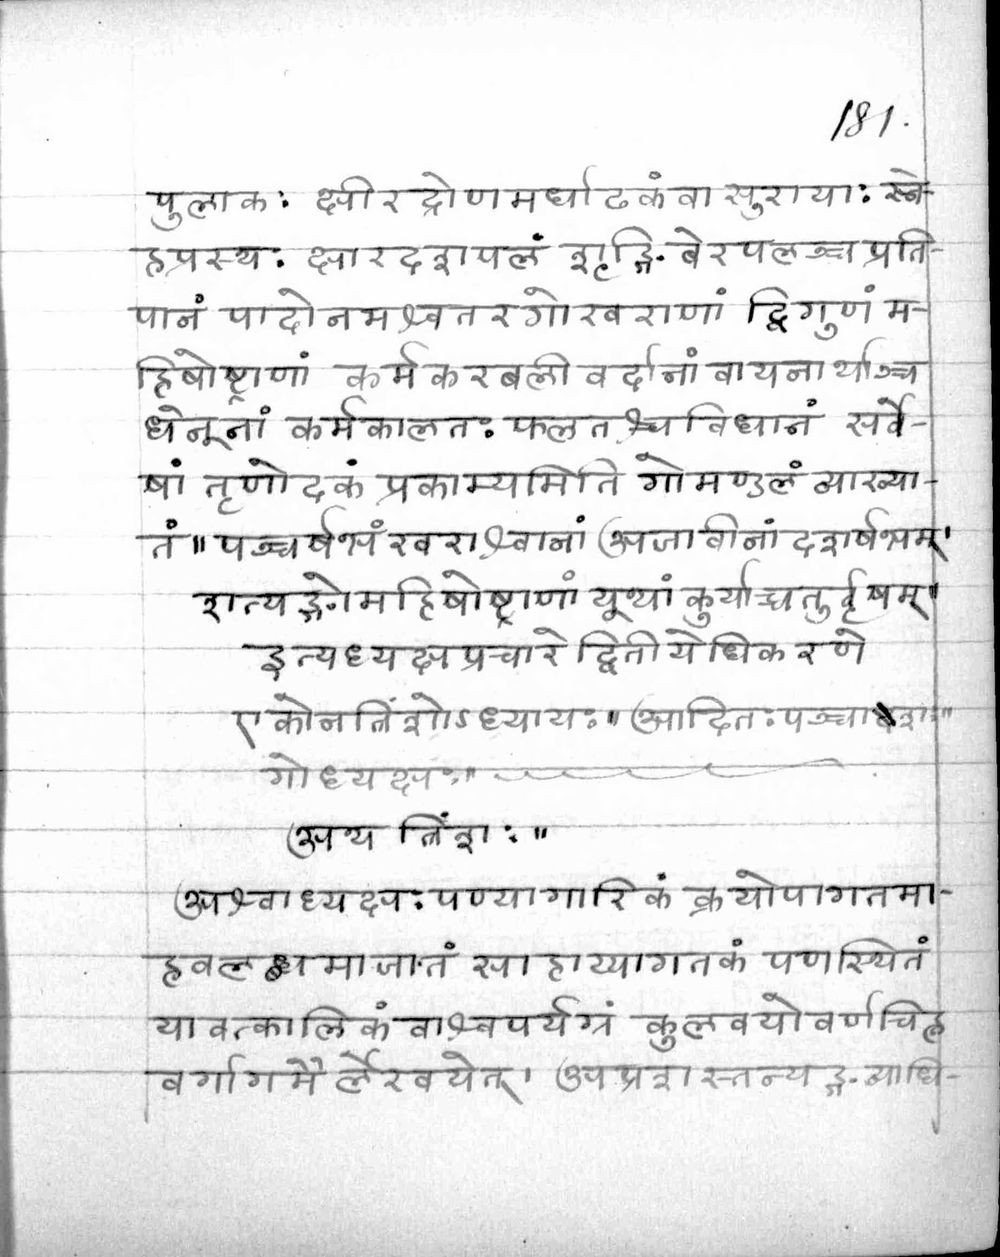 181.
पुलाकः क्षीरद्रोणमर्धाढकं वा सुरायाः स्ने-
हप्रस्थः क्षारदशपलं शृङ्गिबेरपलञ्च प्रति-
पानं पादोनमश्वतरगोखराणां द्विगुणं म-
हिषोष्ट्राणां कर्मकरबलीवर्दानां वायनार्थाञ्च
धेनूनां कर्मकालतः फलतश्च विधानं सर्वे-
षां तृणोदकं प्रकाम्यमिति गोमण्डलं व्याख्या-
तं ॥ पञ्चर्षभं खराश्वानां अजावीनां दशर्षभम् ।
शत्यङ्गोमहिषोष्ट्राणां यूथां कुर्याच्चतुर्वृषम् ॥
इत्यध्यक्षप्रचारे द्वितीयेधिकरणे
एकोनत्रिंशोऽध्यायः ॥ आदितः पञ्चाशः ॥
गोध्यक्षः ॥
अथ त्रिंशः ॥
अश्वाध्यक्षः पण्यागारिकं क्रयोपागतमा-
हवलब्धमाजातं साहाय्यागतकं पणस्थितं
यावत्कालिकं वाश्वपर्यग्रं कुलवयोवर्णचिह्न
वर्गागमैर्लेखयेत् । अप्रशस्तन्यङ्गव्याधि-